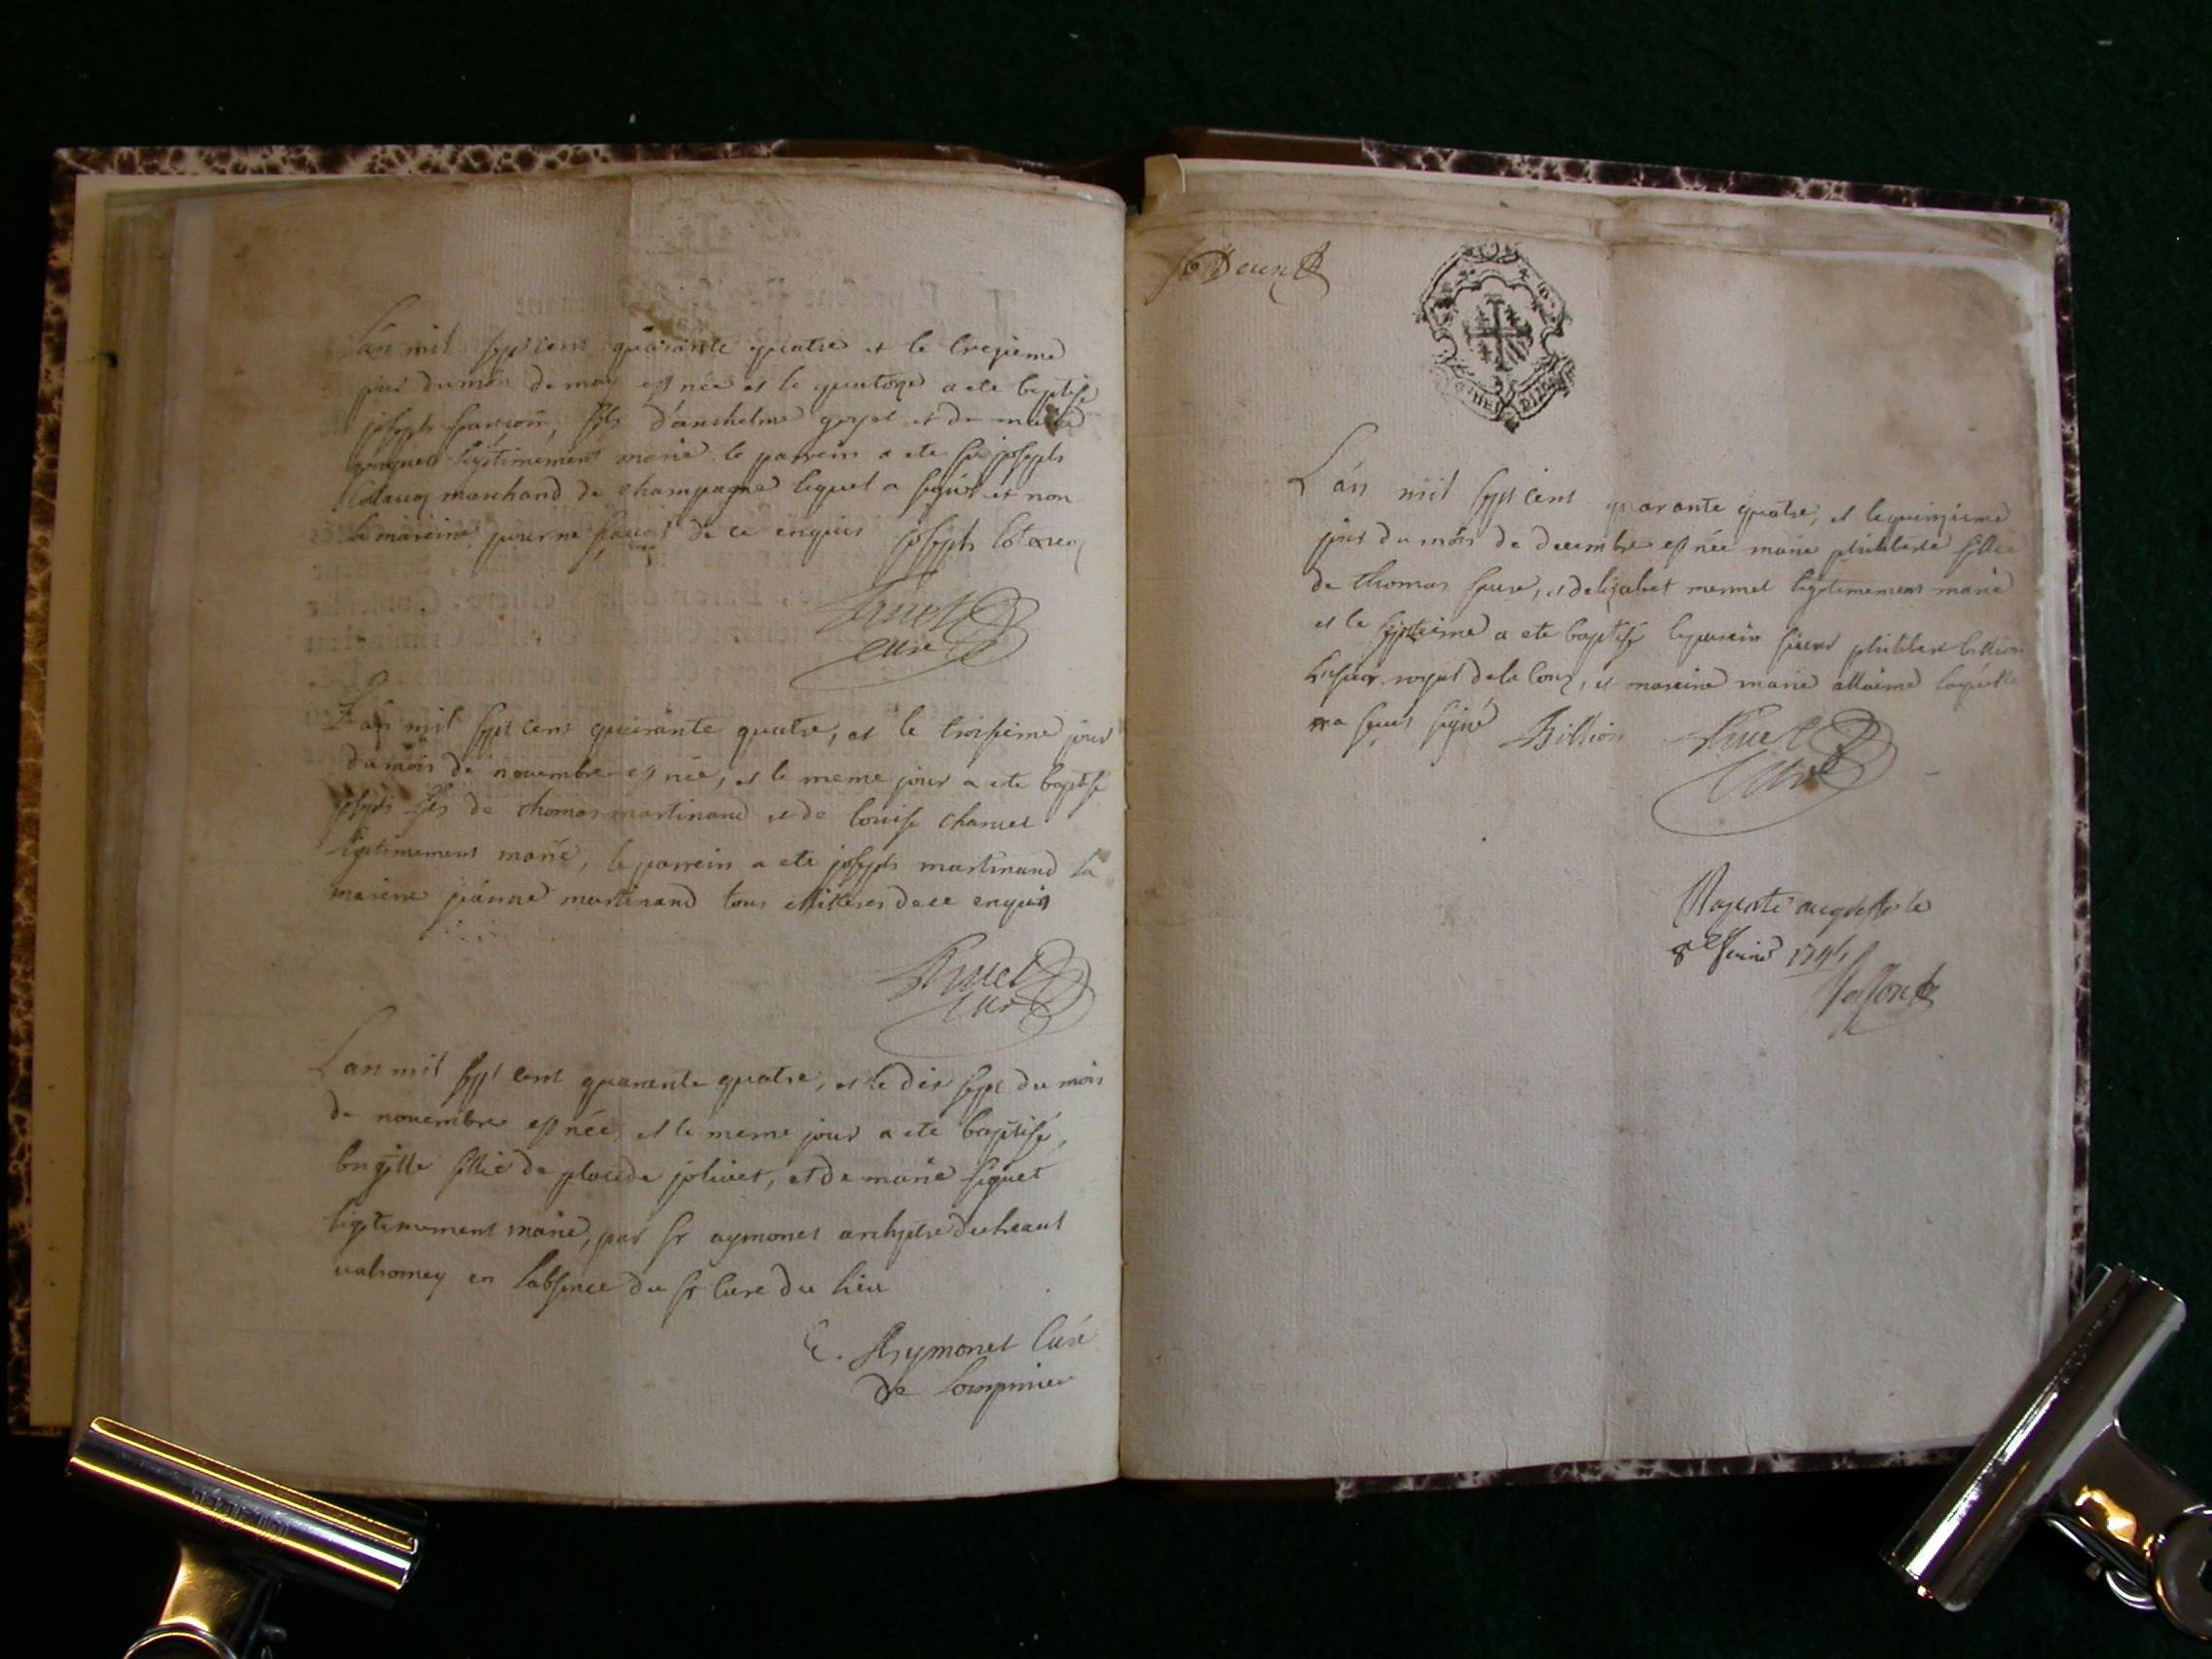 L'an mil sept cens quarante quatre et le trezieme
jour du mois de may est née et le quatorze a ete baptisé
joseph françois, fils d'anthelme goyet et de
legitimement marié le parrein a ete sr joseph
marchand de champagne lequel a signé et non
la mareine pour ne sçavoir de ce enquis joseph
Bruet
curé
L'an mil sept cens quarante quatre, et le troisieme jour
du mois de novembre est née, et le meme jour a ete baptisé
joseph fils de thomas martinand et de louise charvet
legitimement marié, le parrein a ete joseph martinand la
mareine jeanne martinand tous illiteres de ce enquis
Bruet
curé
L'an mil sept cens quarante quatre, et le dix sept du mois
de novembre est née, et le meme jour a ete baptisé,
brigitte fillie de placide jolivet, et de marie siguet
legitimement marié, par sr aymonet archiptre du haut
valromey en l'absence du sr curé du lieu
E. Aymonet Curé
de
fo Deux
L'an mil sept cens quarante quatre, et le quinzieme
jour du mois de decembre est née marie philiberte fillie
de thomas, et delizabet mermet legitimement marié
et le a ete baptisé le parrein sieur philibert billion
de la, et mareine marie laquelle
na sceut signé Billion Bruet
Curé
le
8e 174